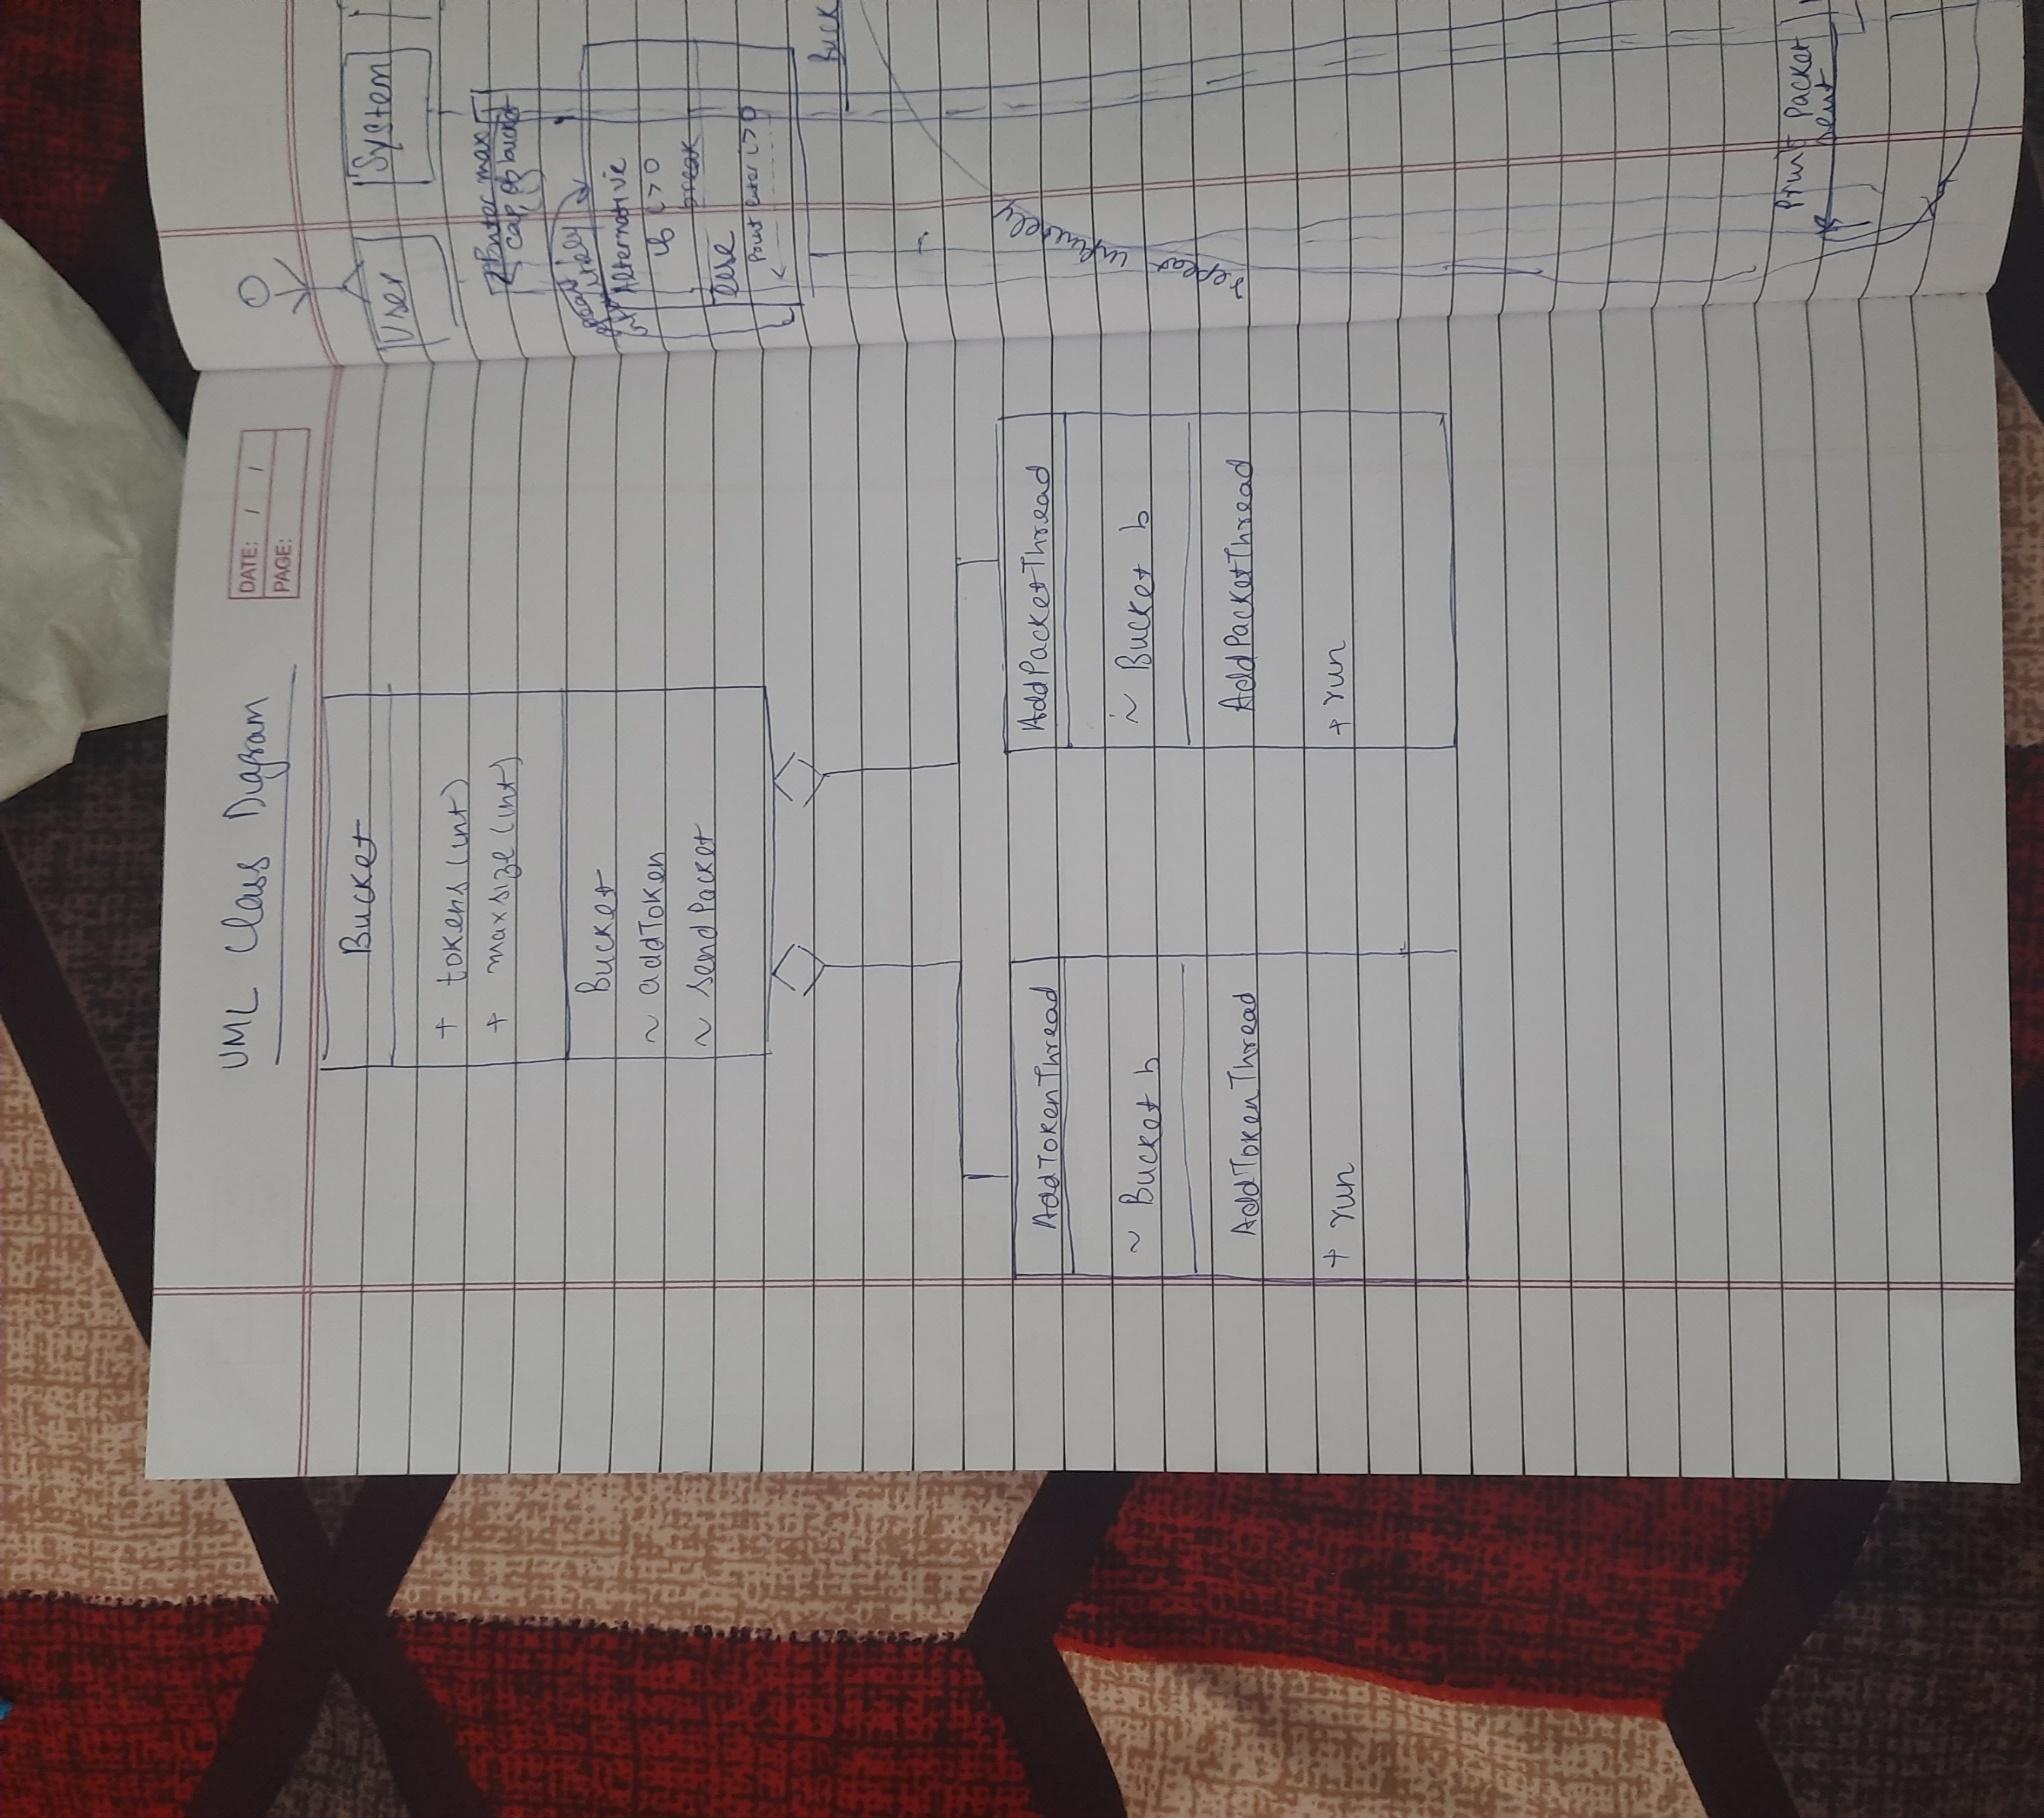 UML Class Diagram
DATE: / /
PAGE:
Bucket
+ tokens (int)
+ maxsize (int)
Bucket
~ addToken
~ sendPacket
AddTokenThread
~ Bucket b
AddTokenThread
+ run
AddPacketThread
~ Bucket b
AddPacketThread
+ run
User
System
Enter max
cap. of bucket
Alternative
>0
break
else
Print enter >0
Buck
repeat infinitely
Print Packet
sent